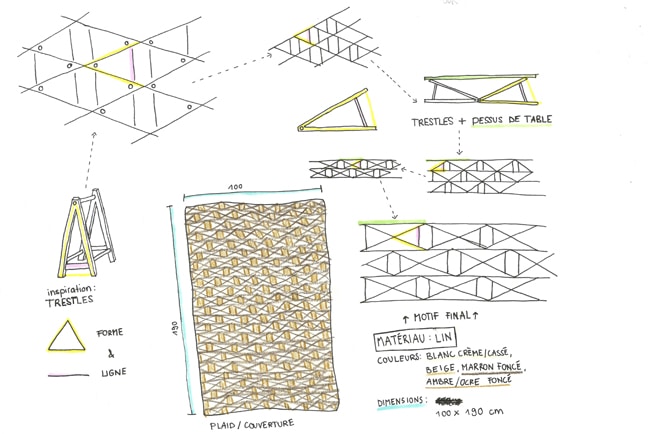 TRESTLES + DESSUS DE TABLE
100
190
inspiration:
TRESTLES
FORME
&
LIGNE
PLAID / COUVERTURE
↑ MOTIF FINAL ↑
MATÉRIAU : LIN
COULEURS: BLANC CRÈME/CASSÉ,
BEIGE, MARRON FONCÉ,
AMBRE/OCRE FONCÉ
DIMENSIONS:
100 x 190 cm